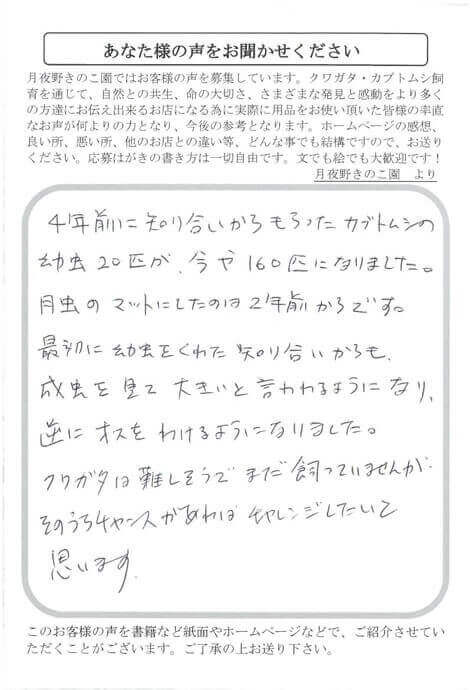 あなた様の声をお聞かせください
月夜野きのこ園ではお客様の声を募集しています。クワガタ・カブトムシ飼
育を通じて、自然との共生、命の大切さ、さまざまな発見と感動をより多く
の方達にお伝え出来るお店になる為に実際に用品をお使い頂いた皆様の率直
なお声が何よりの力となり、今後の参考となります。ホームページの感想、
良い所、悪い所、他のお店との違い等、どんな事でも結構ですので、お送り
ください。応募はがきの書き方は一切自由です。文でも絵でも大歓迎です！
月夜野きのこ園　より
4年前に知り合いからもらったカブトムシの
幼虫20匹が、今や160匹になりました。
月虫のマットにしたのは2年前からです。
最初に幼虫をくれた知り合いからも、
成虫を見て大きいと言われるようになり、
逆にオスをわけるようになりました。
クワガタは難しそうでまだ飼っていませんが
そのうちチャンスがあればチャレンジしたいと
思います。
このお客様の声を書籍など紙面やホームページなどで、ご紹介させてい
ただくことがございます。ご了承の上お送り下さい。